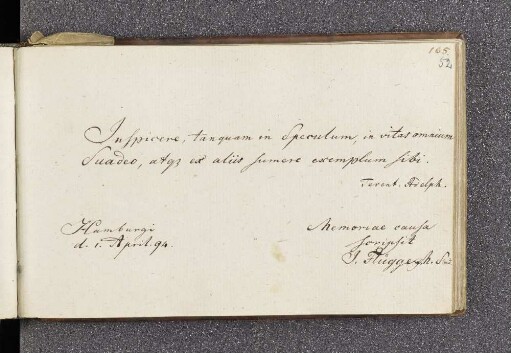 165
52
Inspicere, tanquam in Speculum, in vitas omnium
Suadeo, atqz ex aliis sumere exemplum sibi.
Terent. Adelph.
Hamburgi
d. 1. April. 94.
Memoriae causa
scripsit
J. Flügge,